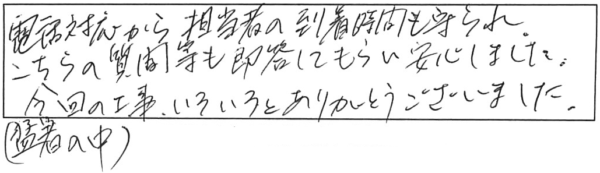 電話対応から担当者の到着時間も守られ。
こちらの質問等も即答してもらい安心しました。
今回の工事、いろいろとありがとうございました。
(猛暑の中)